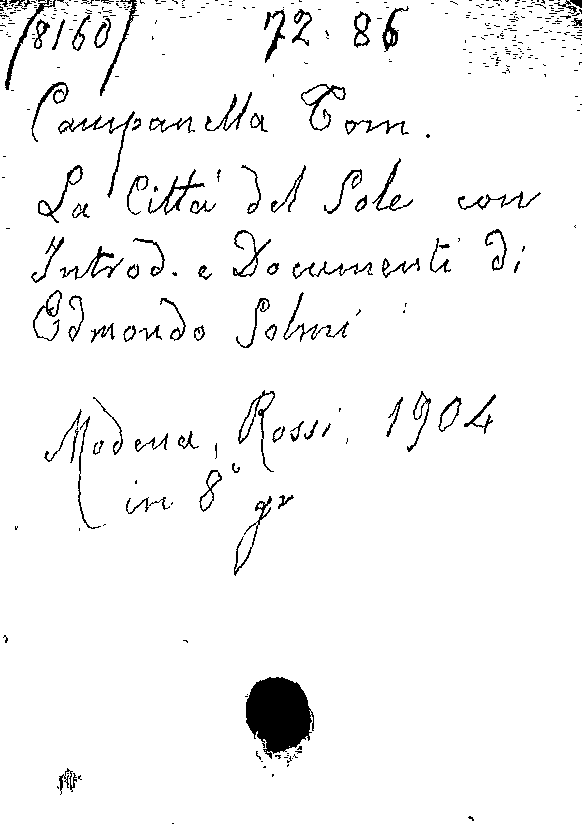 (8160) 72. 86
Campanella Tom.
La Città del Sole con
Introd. e Documenti di
Edmondo Solmi
Modena, Rossi, 1904
in 8° gr